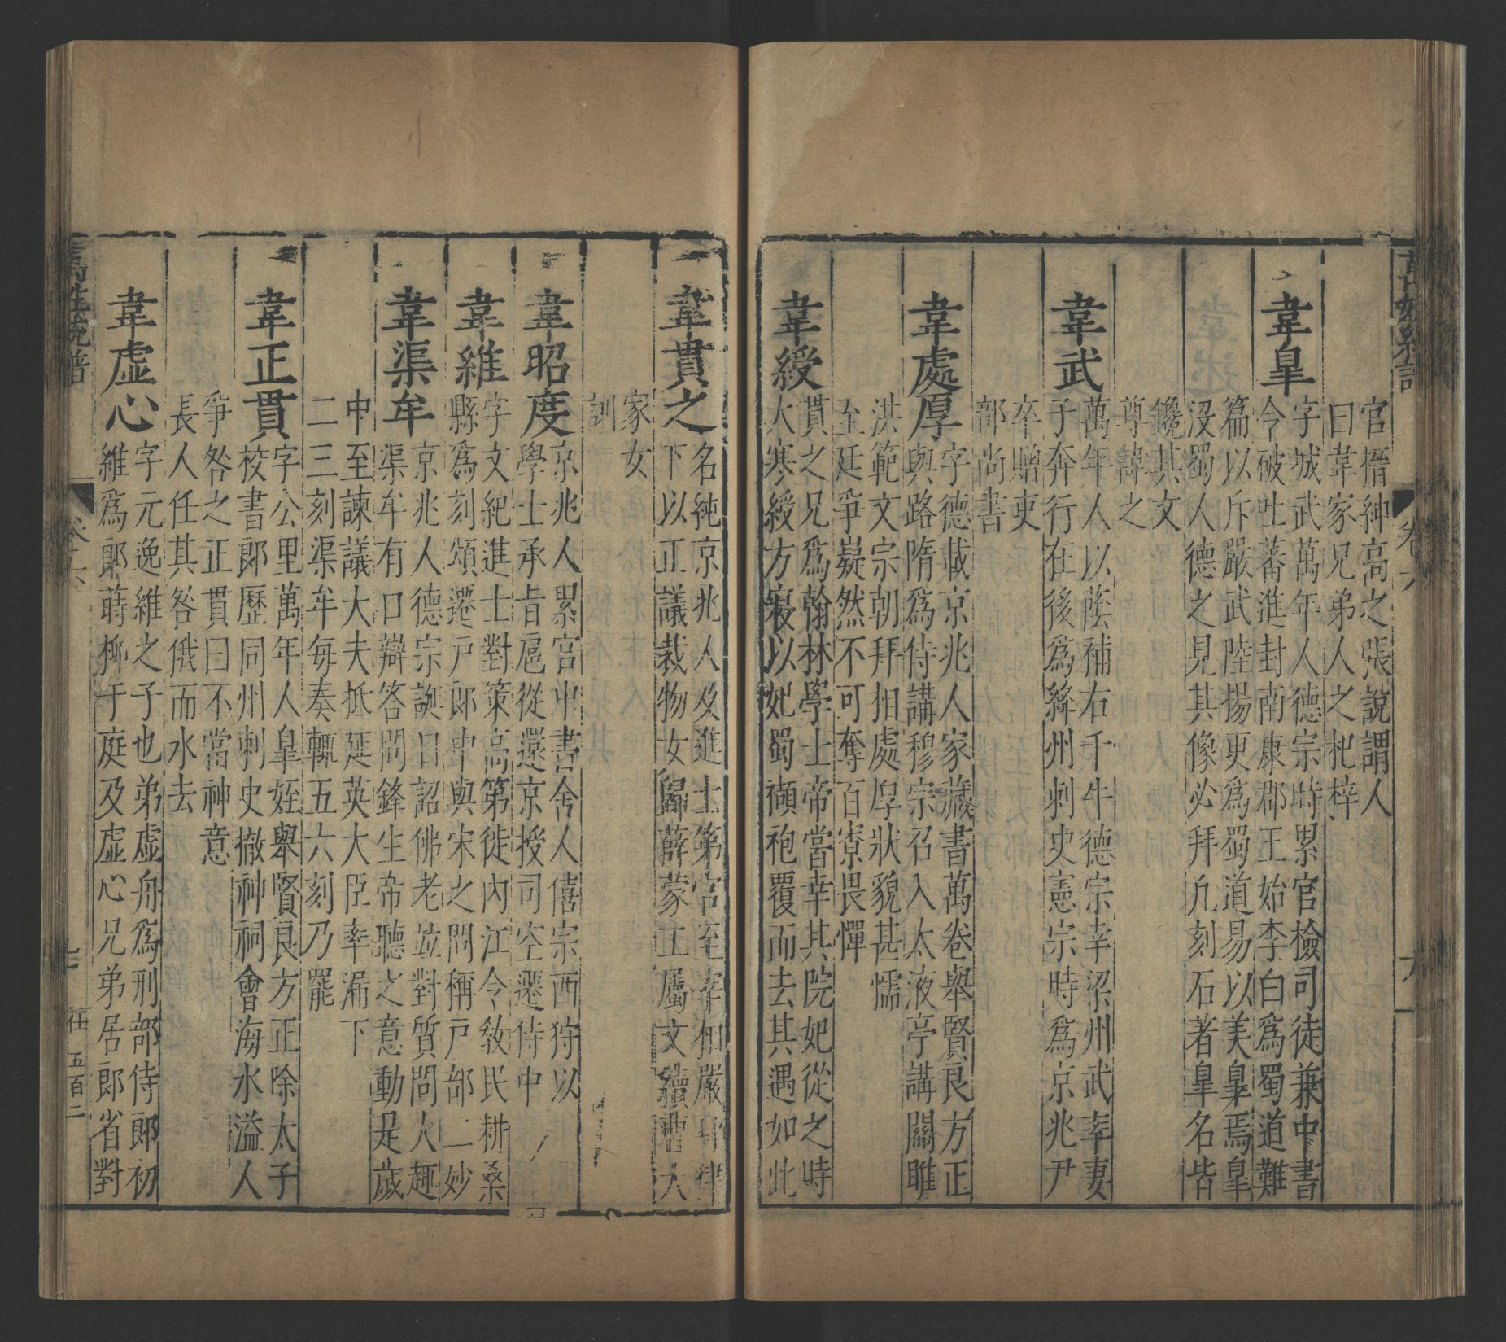 官搢紳高之張說謂人
曰韋家兄弟人之杞梓
韋臯
字城武萬年人德宗時累官檢司徒兼中書
令破吐蕃進封南康郡王始李白爲蜀道難
篇以斥嚴武陸揚更爲蜀道易以美臯焉臯
沒蜀人德之見其像必拜凡刻石著臯名皆
鑱其文
尊諱之
韋武
萬年人以蔭補右千牛德宗幸梁州武棄妻
子奔行在後爲絳州刺史憲宗時爲京兆尹
卒贈吏
部尚書
韋處厚
字德載京兆人家藏書萬卷舉賢良方正
與路隋爲侍講穆宗召入太液亭講關雎
洪範文宗朝拜相處厚狀貌甚懦
至廷爭嶷然不可奪百寮畏憚
韋綬
貫之兄爲翰林學士帝嘗幸其院妃從之時
大寒綬方寢以妃蜀襭袍覆而去其遇如此
韋貫之
名純京兆人及進士第官至宰相嚴身律
下以正議裁物女歸薛蒙工屬文續曹大
家女
訓
韋昭度
京兆人累官中書舍人僖宗西狩以
學士承旨扈從還京授司空遷侍中
韋維
字文紀進士對策高第徙內江令敎民耕桑
縣爲刻頌遷戶郎中與宋之問稱戶部二妙
韋渠牟
京兆人德宗誕日詔佛老並對質問大趣
渠牟有口辯答問鋒生帝聽之意動是歲
中至諫議大夫抵延英大臣率漏下
二三刻渠牟每奏輒五六刻乃罷
韋正貫
字公里萬年人臯姪舉賢良方正除太子
校書郎歷同州刺史撤神祠會海水溢人
爭咎之正貫曰不當神意
長人任其咎俄而水去
韋虛心
字元逸維之子也弟虛舟爲刑部侍郎初
維爲郎蒔柳于庭及虛心兄弟居郎省對
萬姓統譜
卷之六
七
五百二